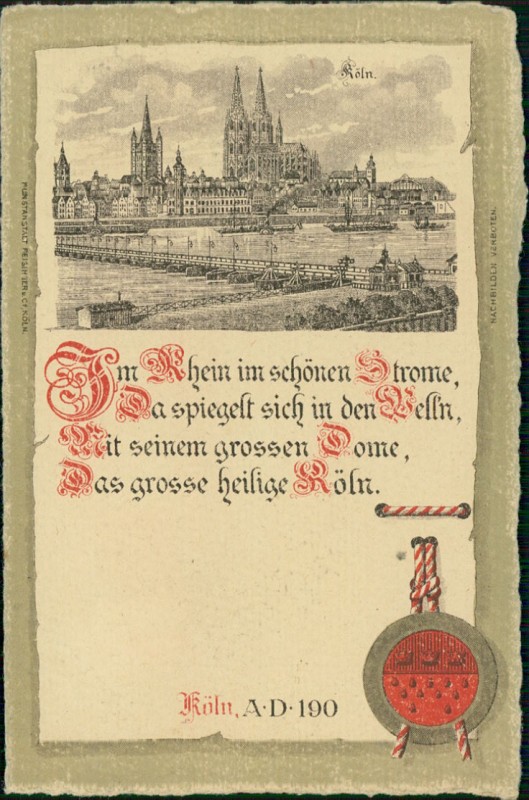 Köln.
Im Rhein im schönen Strome,
Da spiegelt sich in den Welln,
Mit seinem grossen Dome,
Das grosse heilige Köln.
Köln, A·D·190
KUNSTANSTALT & CO. KÖLN.
NACHBILDEN VERBOTEN.